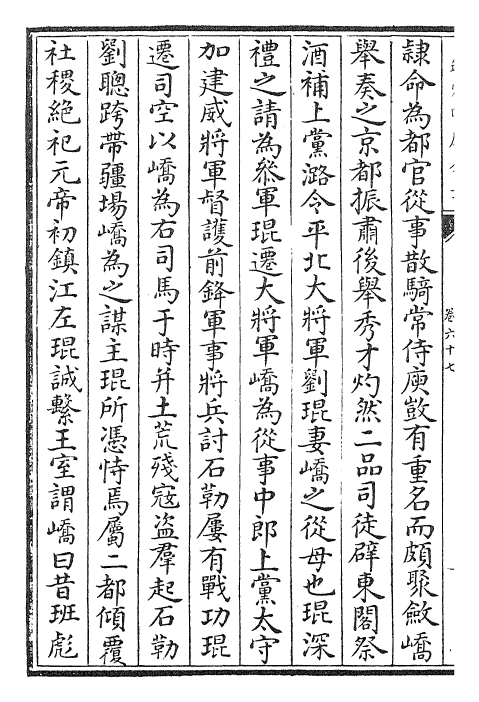 隷命為都官從事散騎常侍庾敳有重名而頗聚斂嶠
舉奏之京都振肅後舉秀才灼然二品司徒辟東閣祭
酒補上黨潞令平北大將軍劉琨妻嶠之從母也琨深
禮之請為參軍琨遷大將軍嶠為從事中郎上黨太守
加建威將軍督護前鋒軍事將兵討石勒屢有戰功琨
遷司空以嶠為右司馬于時并土荒殘寇盜羣起石勒
劉聰跨帶疆場嶠為之謀主琨所憑恃焉屬二都傾覆
社稷絶祀元帝初鎮江左琨誠繫王室謂嶠曰昔班彪
卷六十七